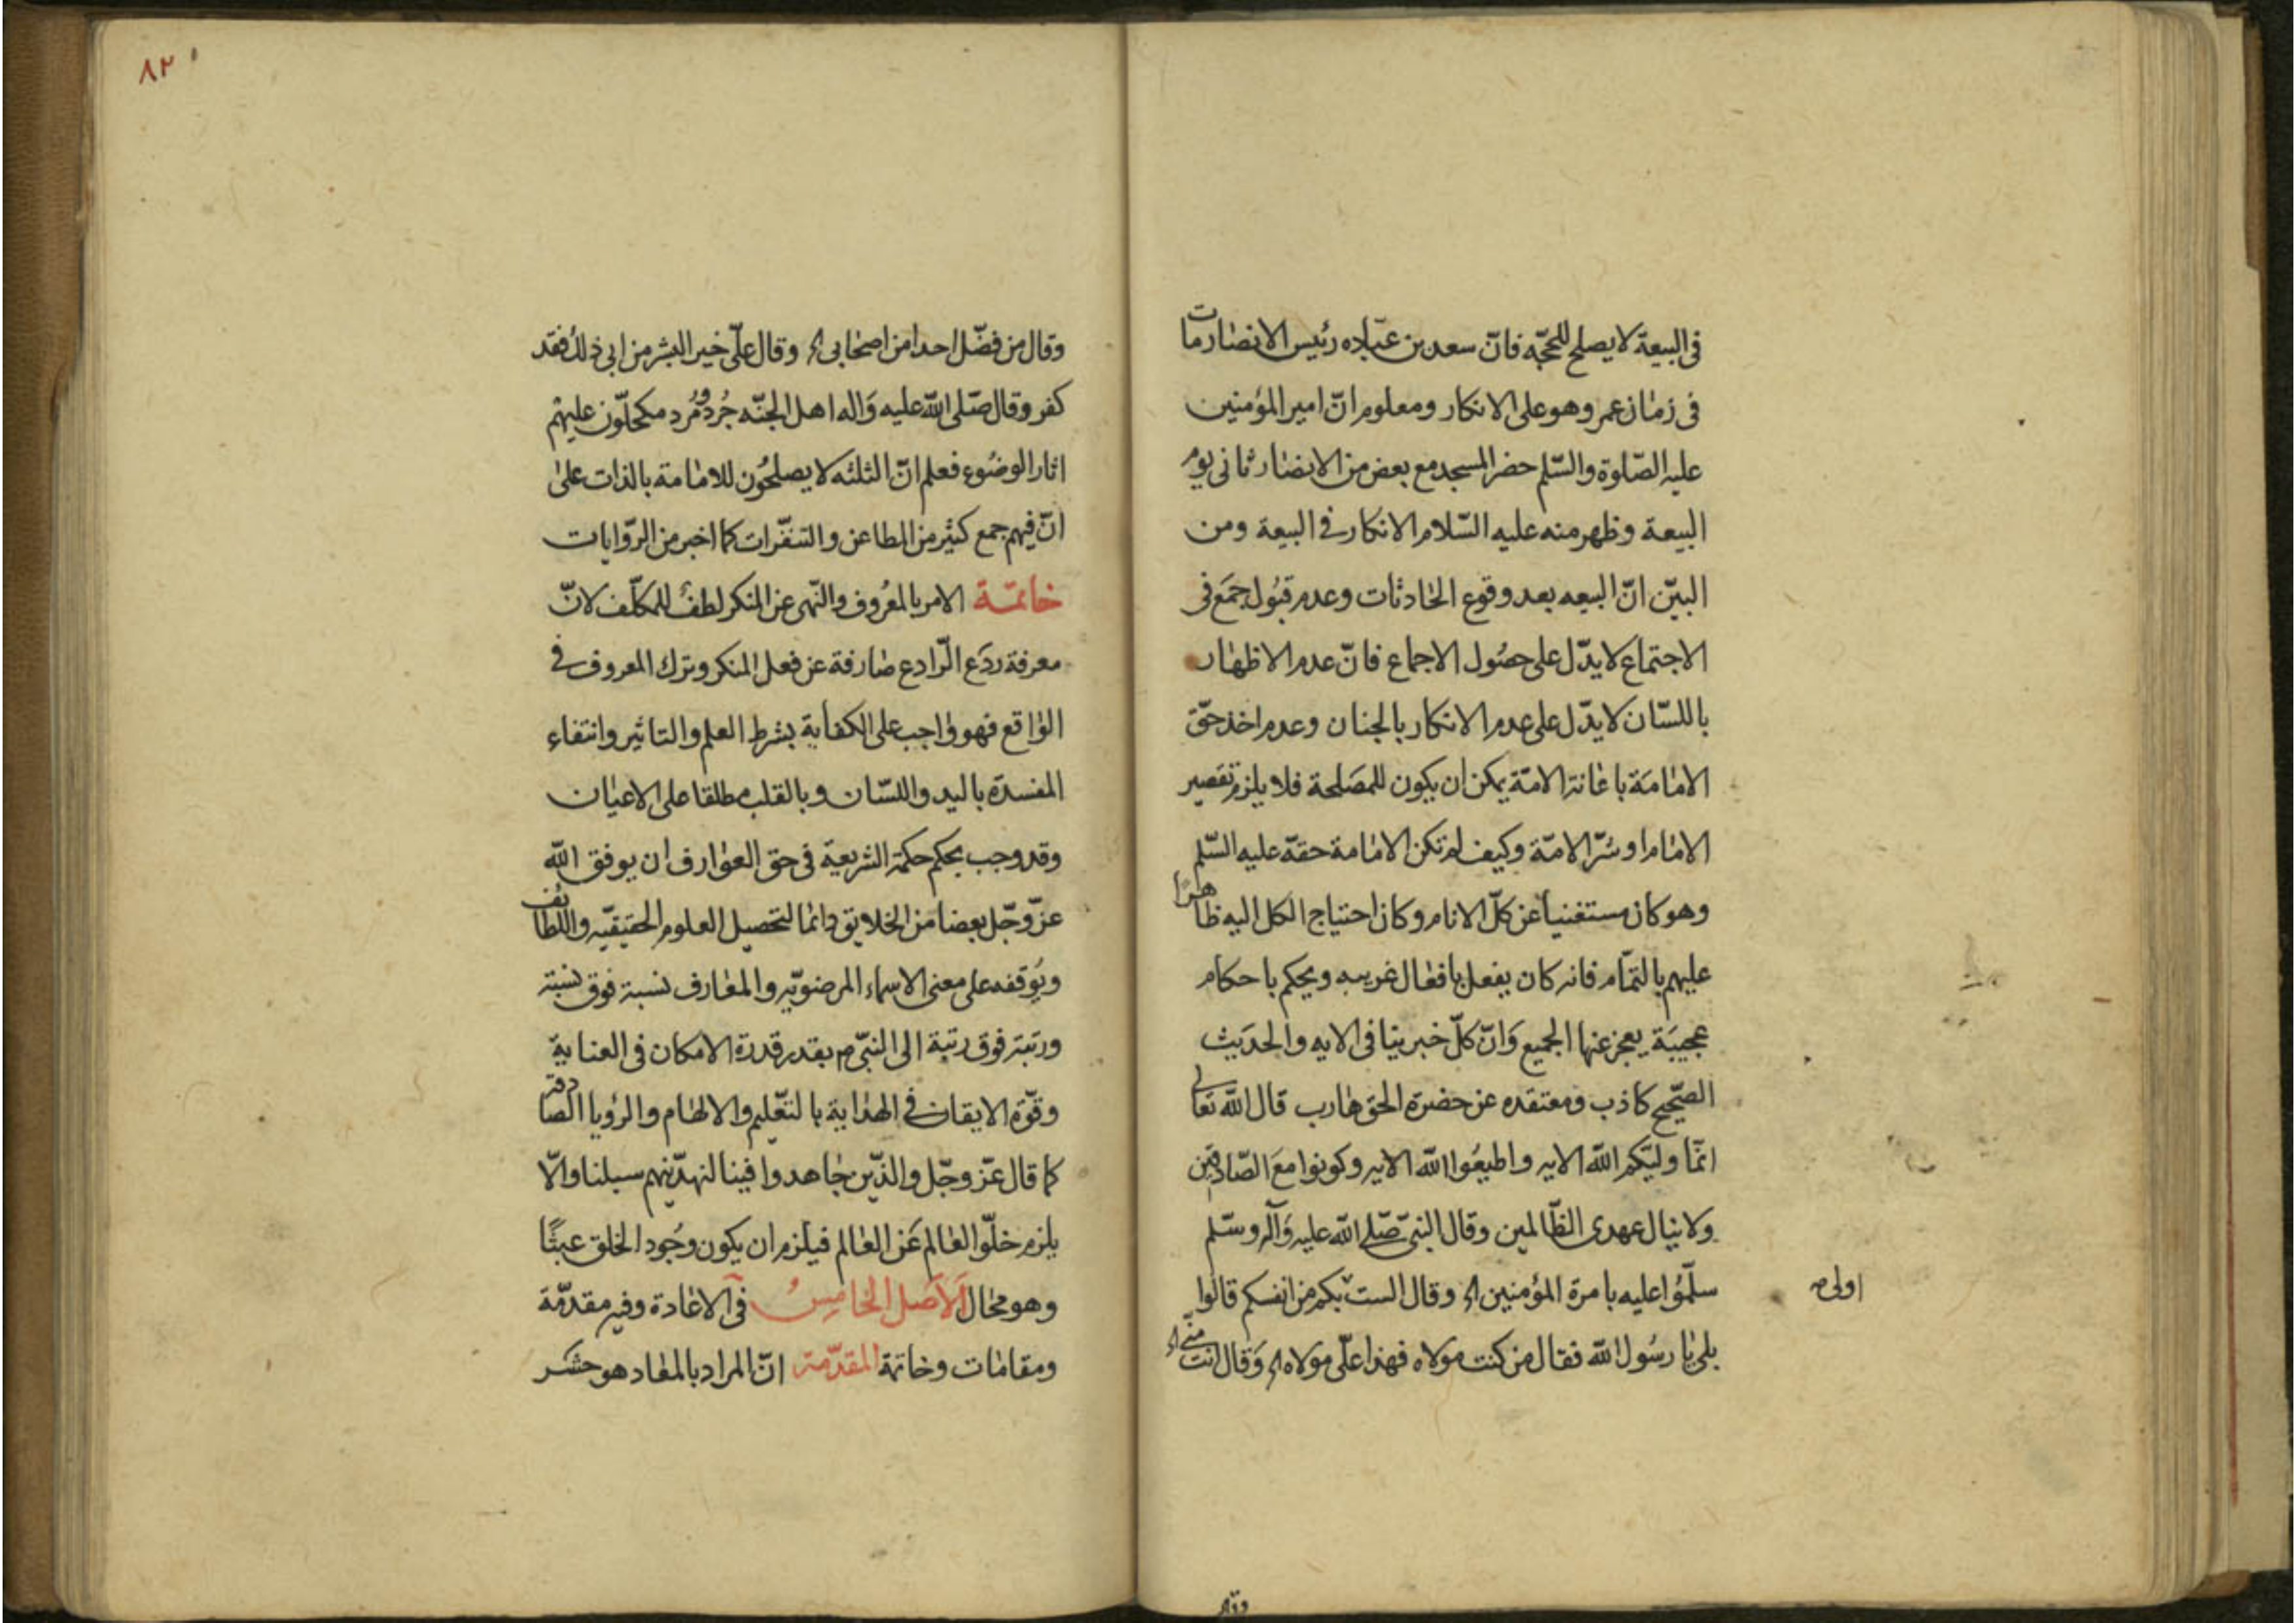 فى البيعة لا يصلح للحجّة فانّ سعد بن عبّاده رئيس الانصار مات
فى زمان عمر وهو على الانكار ومعلوم انّ امير المؤمنين
عليه الصّلوة والسّلم حضر المسجد مع بعض من الانصار ثانى يوم
البيعة وظهر منه عليه السّلام الانكار فى البيعة ومن
البيّن انّ البيعه بعد وقوع الحادثات وعدم قبُول جمَع فى
الاجتماع لا يدّل على حصُول الاجماع فانّ عدم الاظهار
باللسّان لا يدّل على عدم الانكار بالجنان وعدم اخذ حقّ
الامامَة باعانة الامّة يمكن ان يكون للمصَلحة فلا يلزم تقصير
الامام او سُرّ الامّة وكيف لم تكن الامامة حقّه عليه السّلم
وهو كان مستغنيا عن كلّ الانام وكان احتياج الكل اليه ظاهرا
عليهم بالتمّام فانه كان يفعل بافعال غريبه ويحكم باحكام
عجيبَة يعجز عنها الجميع وَانّ كلّ خبر ينافى الايه والحدَيث
الصّحيح كاذب ومعتقده عن حضرة الحق هارب قال الله تعالى
انمّا وليّكم الله الايه واطيعُوا الله الايه وكونوا معَ الصّادقين
ولا ينال عهدى الظّالمين وقال النبىّ صّلى الله عليه وَآله وسّلم
سلّمُوا عليه بامرة المؤمنين اه وقال الست بكم من انفسكم قالوا
اولى صح
بلى يا رسُول الله فقال من كنت مولاه فهذا علّى مولاه اه وَقال انت منّى اه
وقال
٨٢
وقال من فضّل احدا من اصحابى اه وقال علّى خير البشر من ابى ذلك فقد
كفر وقال صّلى الله عليه وَاله اهل الجنّه جُرد ومُرد مكحلّون عليهم
اثار الوضُوء فعلم انّ الثلثه لا يصلحُون للامامة بالذات على
انّ فيهم جمع كثير من المطاعن والتنفّرات كما اخبر من الرّوايات
خاتمة الامر بالمعُروف والنّهى عن المنكر لطفٌ للمكلّف لانّ
معرفة ردَع الرّادع صارفة عن فعل المنكر وترك المعروف فى
الواقع فهو واجب على الكفاية بشرط العلم والتاثير وانتفاء
المفسدة باليد واللسّان وبالقلب مطلقا على الاعيان
وقد وجب بحكم حكمة الشريعة فى حق العوارف ان يوفق الله
عزّ وجّل بعضا من الخلايق دائما لتحصيل العلوم الحقيقيّه واللطائف
ويُوقفه على معنى الاسماء المرضويّه والمعارف نسبة فوق نسبة
ورتبة فوق رتبة الى النبىّ ص بقدر قدرة الامكان فى العناية
وقوّة الايقان فى الهداية بالتعّليم والالهام والرؤيا الصادقة
كما قال عّز وجّل والذّين جاهدوا فينا لنهدّينهم سبلنا والّا
يلزم خلّو العالم عَن العالم فيلزم ان يكون وجُود الخلق عبثًا
وهو محال الاصل الخامسُ فى الاعادة وفيه مقدّمة
ومقامات وخاتمة المقدّمة انّ المراد بالمعاد هو حشر